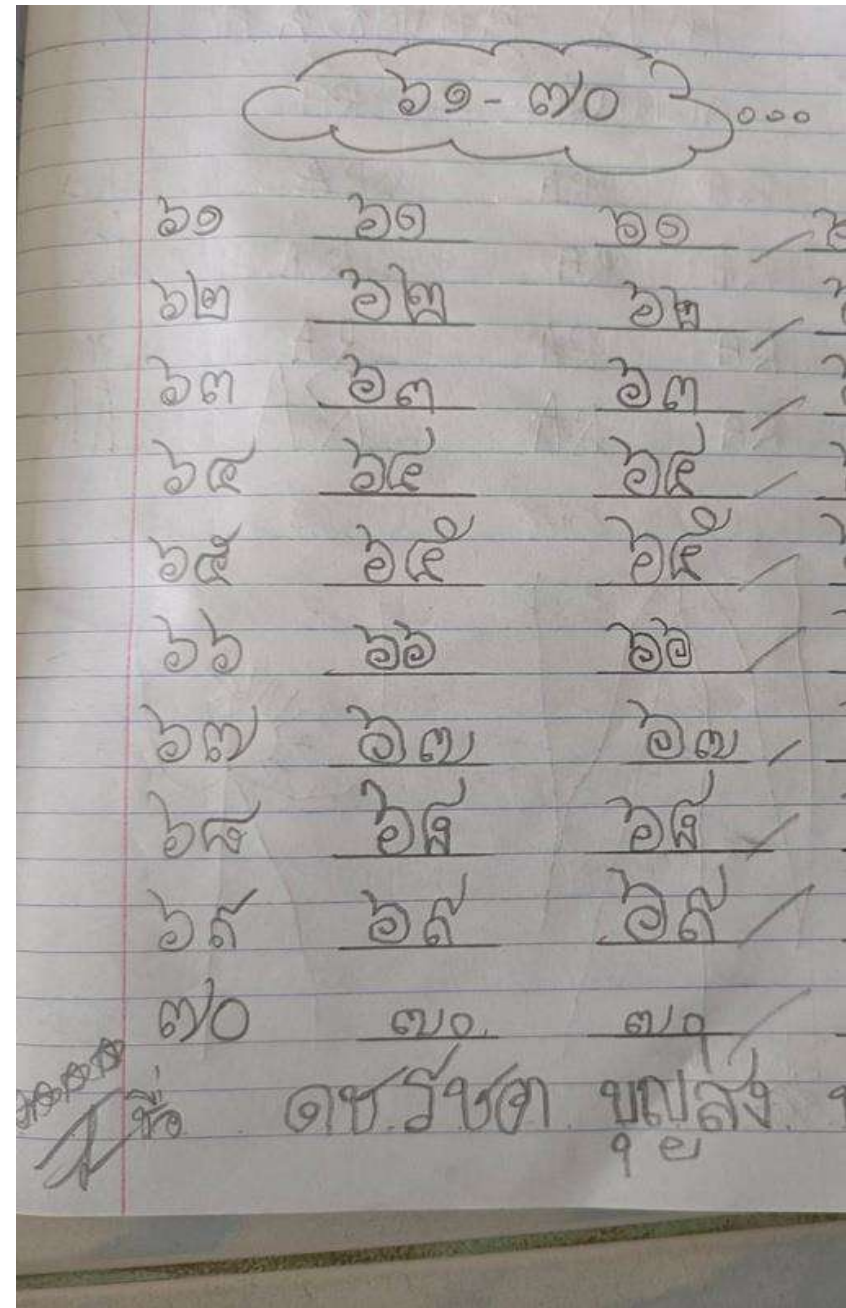 ๖๑ - ๗๐
๖๑ ๖๑ ๖๑
๖๒ ๖๒ ๖๒
๖๓ ๖๓ ๖๓
๖๔ ๖๔ ๖๔
๖๕ ๖๕ ๖๕
๖๖ ๖๖ ๖๖
๖๗ ๖๗ ๖๗
๖๘ ๖๘ ๖๘
๖๙ ๖๙ ๖๙
๗๐ ๗๐ ๗๐
ชื่อ ดช. บุญส่ง